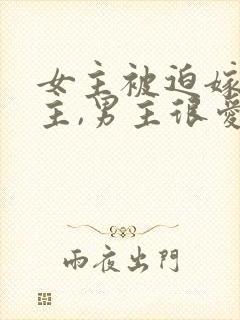 女主被迫嫁
主,男主很爱
雨夜出門